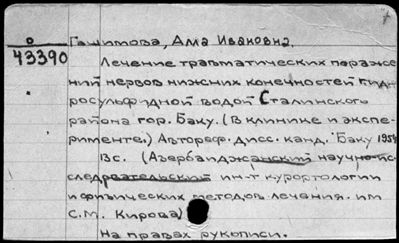 Гашимова, Ама Ивановна.
43390
Лечение травматических пораже-
ний нервов нижних конечностей гид-
росульфидной водой Сталинского
района гор. Баку. (В клинике и экспе-
рименте.) Автореф. дисс. канд. Баку 1954
13с. (Азербайджанский научно-ис-
следовательский ин-т курортологии
и физических методов лечения. им
С.М. Кирова)
На правах рукописи.